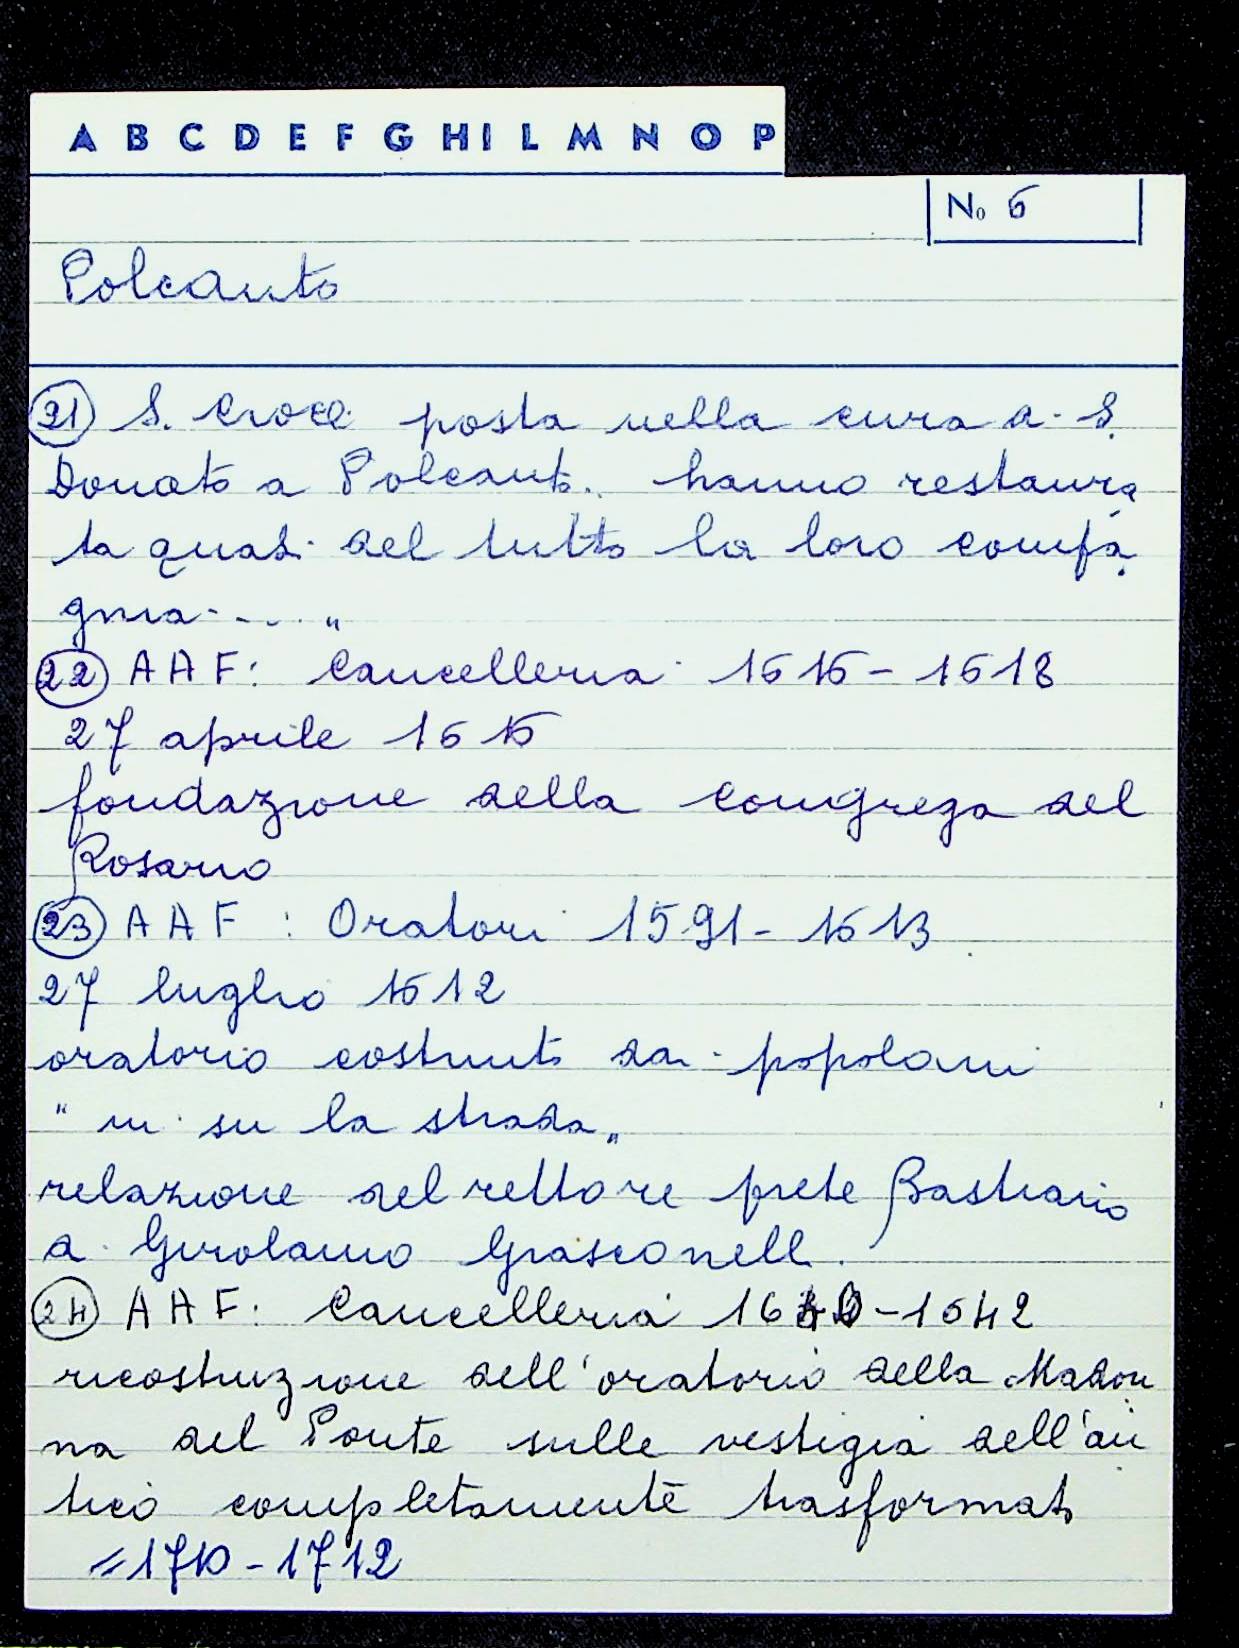 A B C D E F G H I L M N O P
No 6
Polcanto
21 S. Croce posta nella cura a S.
Donato a Polcanto.. hanno restaura
ta quasi del tutto la loro compa
gnia - ... "
22 AAF: Cancelleria 1616 - 1618
27 aprile 1616
fondazione della Congrega del
Rosario
23 AAF : Oratori 1591 - 1613
27 luglio 1612
oratorio costruito da popolani
" in su la strada "
relazione del rettore prete Bastiano
a Girolamo Grasconelli.
24 AAF: Cancelleria 1640 - 1642
ricostruzione dell'oratorio della Madon
na del Ponte sulle vestigia dell'an
tico completamente trasformato
= 1710 - 1712